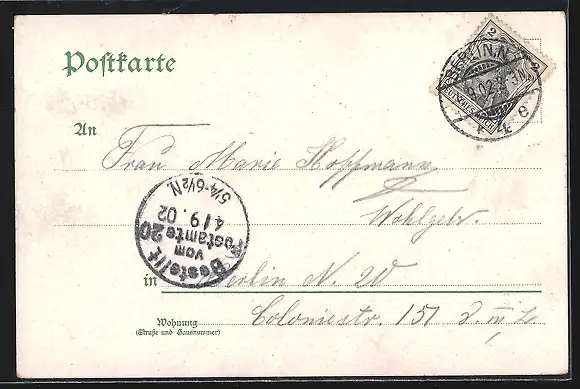 Postkarte
2 2
DEUTSCHES REICH
BERLIN, N.
9.02.
4 e
An
Frau Marie Hoffmann
Wohlgeb.
Bestellt
vom
Postamte 20
4 / 9. 02
5¼-6½N.
in Berlin N. 20
Wohnung Coloniestr. 151
(Straße und Hausnummer)